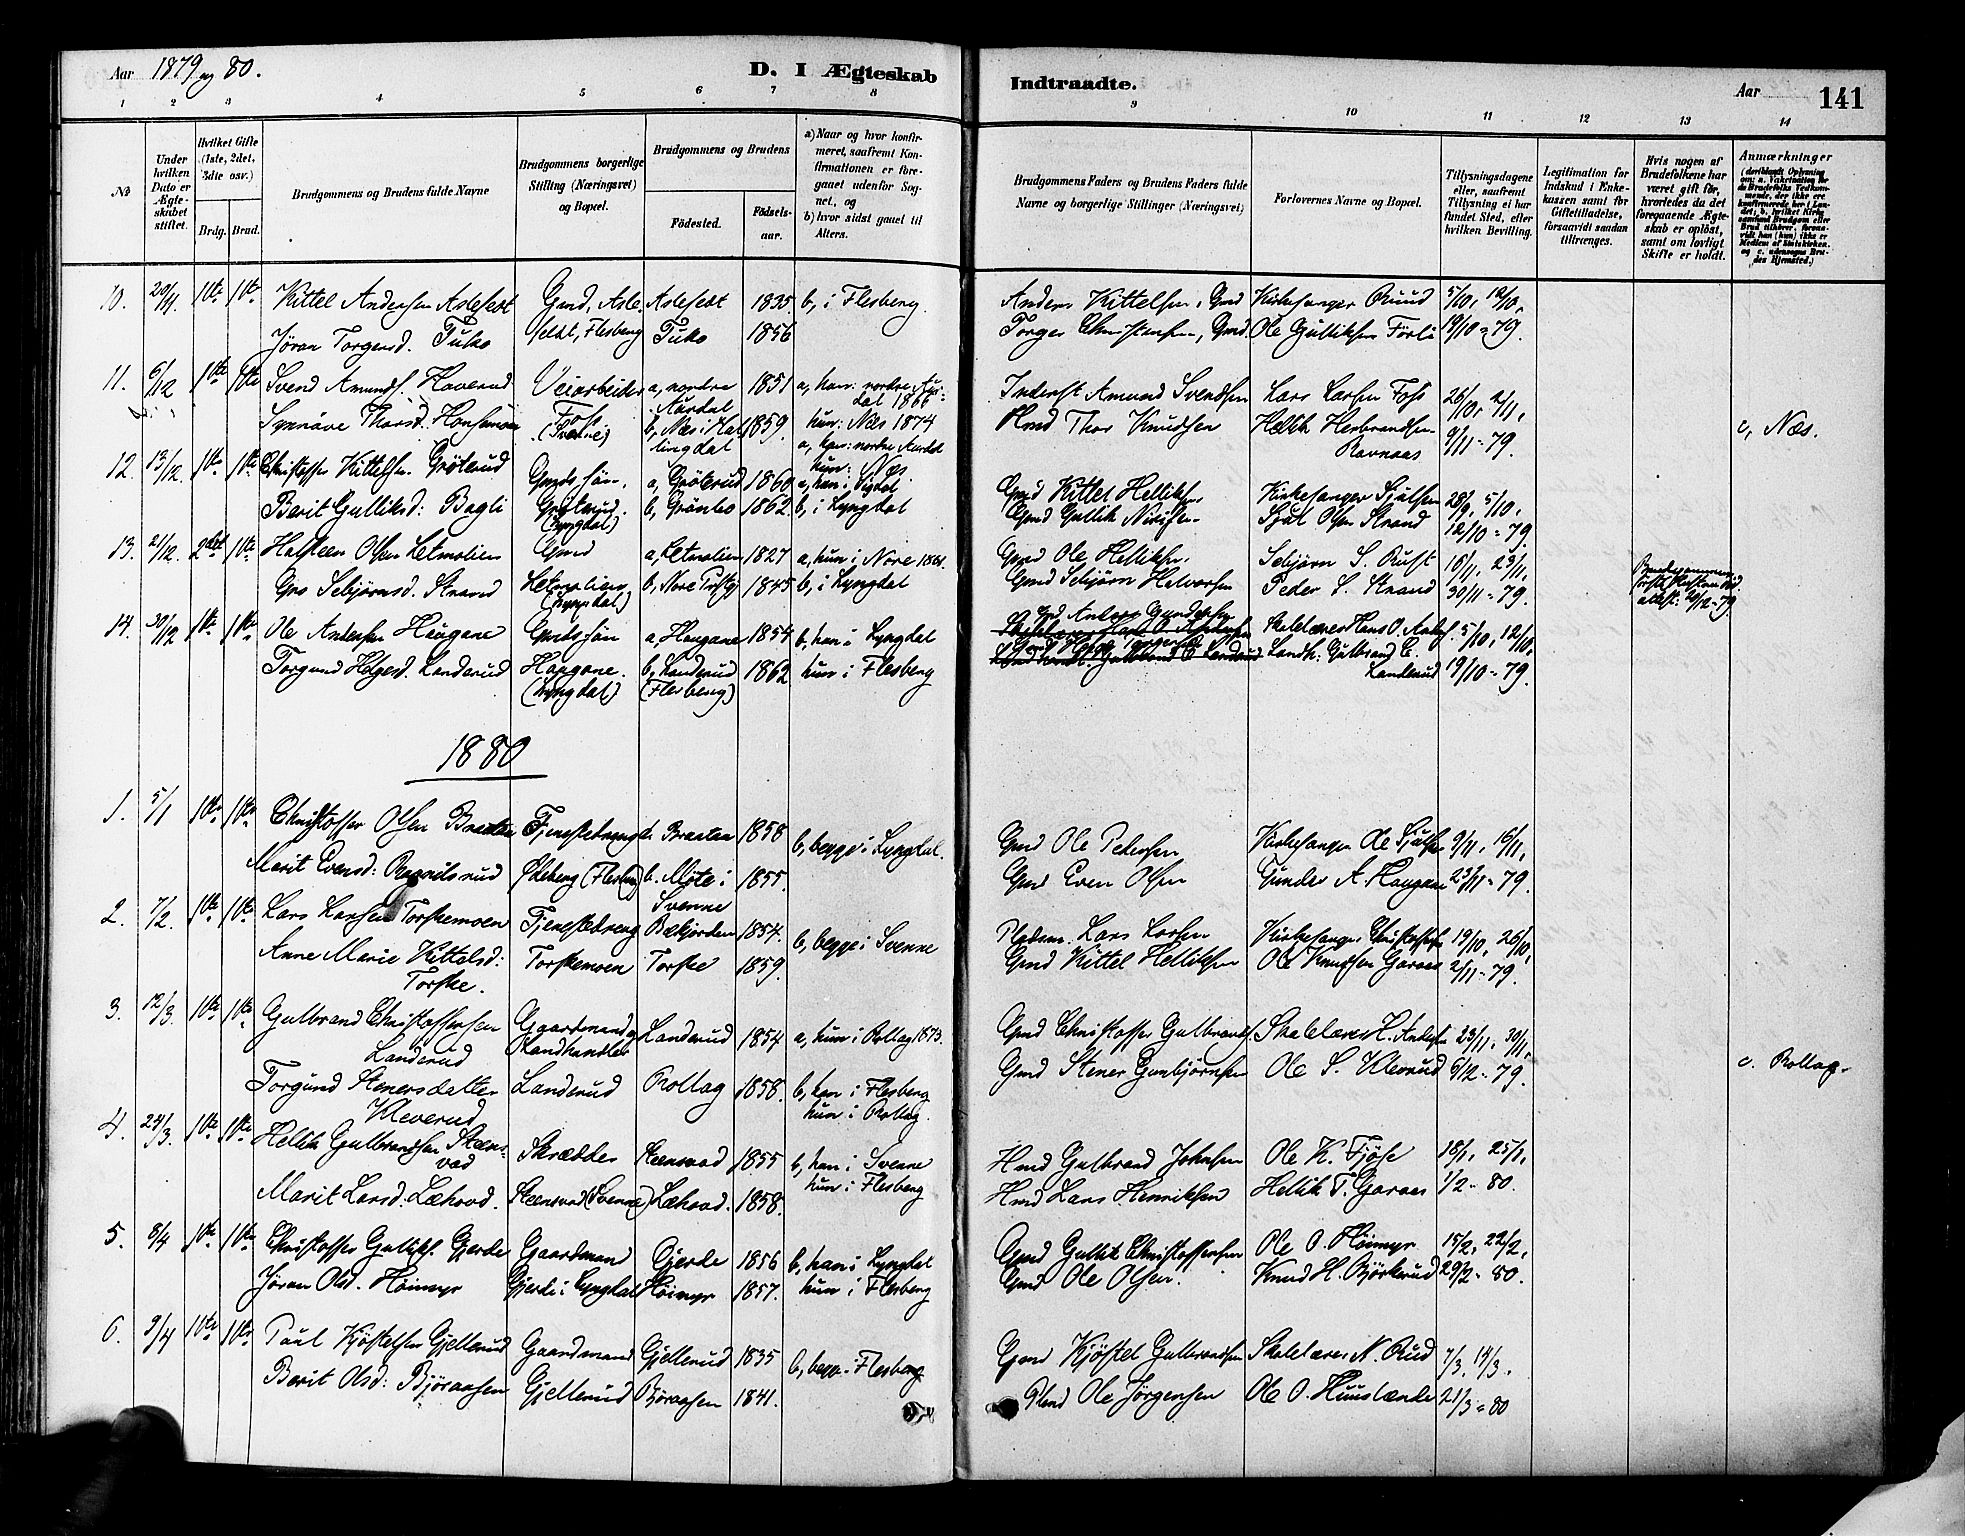 Aar 1879 og 80.
D. I Ægteskab
Indtraadte.
Aar
141
1 2 3 4 5 6 7 8 9 10 11 12 13 14
No
Under hvilken Dato er Ægteskabet stiftet.
Hvilket Gifte (1ste, 2det, 3die osv.)
Brdg. Brud.
Brudgommens og Brudens fulde Navne
Brudgommens borgerlige Stilling (Næringsvei) og Bopæl.
Brudgommens og Brudens
Fødested.
Fødselsaar.
a) Naar og hvor konfirmeret, saafremt Konfirmationen er foregaaet udenfor Sognet, og
b) hvor sidst gaaet til Alters.
Brudgommens Faders og Brudens Faders fulde Navne og borgerlige Stillinger (Næringsvei)
Forlovernes Navne og Bopæl.
Tillysningsdagene eller, saafremt Tillysning ei har fundet Sted, efter hvilken Bevilling.
Legitimation for Indskud i Enkekassen samt for Giftetilladelse, forsaavidt saadan tiltrænges.
Hvis nogen af Brudefolkene har været gift før, hvorledes da det foregaaende Ægteskab er opløst, samt om lovligt Skifte er holdt.
Anmærkninger
10. 20/11 1ste 1ste Kittel Andersen Aslefedt Gmd, Asle- Aslefedt 1835 b, i Flesberg. Anders Kittelsen, Gmd Kirkesanger Ruud 5/10, 12/10,
Jøran Torgersd. Tuko fedt, Flesberg Tuko 1856 Torger Christensen, Gmd. Ole Gulliksen Førli 19/10 - 79.
11. 6/12 1ste 1ste Svend Amunds. Haverud Veiarbeider a, nordre 1851 a, han: nordre Aur- Inderst Amund Svendsen Lars Larsen Foss 26/10, 2/11,
Aurdal dal 1866
Synnøve Thorsd. Foss (Svenne) b, Næs i Hallingdal 1859. hun: Næs 1874 Hmd Thor Knudsen Hellik Herbrandsen Ravnaas 9/11 - 79. c, Næs.
a, han: nordre Aurdal
hun: Næs
12. 13/12 1ste 1ste Christoffer Kittelsen Grøterud Gmds søn. a, Grøterud 1860 a, han i Sigdal Gmd Kittel Helliksen Kirkesanger Sjulsen 28/9, 5/10,
Berit Gulliksd: Bagli Grøterud. (Lyngdal) b, Grønbo 1862. b, i Lyngdal Gmd Gullik Sjul Olsen Strand 12/10 - 79.
13. 21/12. 2det 1ste Halsteen Olsen Letmolien Gmd a, Letmolien 1827 a, hun i Nore 1861. Gmd Ole Helliksen. Sebjørn S. Rust 16/11, 23/11,
Gro Sebjørnsd. Strand Letmolien. (Lyngdal) b, Nore 1845 b, i Lyngdal Gmd Sebjørn Halvorsen Peder S. Strand 30/11 - 79.
14. 30/12 1ste 1ste Ole Andersen Haugane Gmds søn a, Haugane 1854 b, han i Lyngdal Gmd Anders Gundersen Skolelærer Hans O. Anders. 5/10, 12/10,
Torgund Helgesd. Landerud Haugane. (Lyngdal) b, Landerud (Flesberg) 1862 hun i Flesberg Landh: Gulbrand C. Landerud 19/10 - 79.
1880
1. 5/1 1ste 1ste Christoffer Olsen Braaten Tjenestedreng Braaten 1858 b, begge i Lyngdal. Gmd Ole Pedersen Kirkesanger Ole Sjulsen 9/11, 16/11,
Marit Evensd: Ragnildsrud (Flesberg) b. Myte i Svenne 1855. Gmd Even Olsen Gunder A. Haugane 23/11 - 79.
2. 7/2 1ste 1ste Lars Larsen Torskemoen Tjenestedreng Bækjorden 1854. b, begge i Svenne Pladsm. Lars Larsen Kirkesanger Christoffersen 19/10, 26/10,
Anne Marie Kittelsd: Torske. Torskemoen Torske 1859. Gmd Kittel Helliksen Ole Knudsen Garaas 2/11 - 79.
3. 12/3. 1ste 1ste Gulbrand Christoffersen Landerud Gaardmand og Landhandler Landerud 1854 a, hun i Rollag 1873. Gmd Christoffer Gulbrands. Skolelærer H. Andersen 23/11, 30/11,
Torgund Stenersdatter Kleverud Landerud Rollag 1858. b, han i Flesberg Gmd Stener Gunbjørnsen Ole S. Kleverud 6/12 - 79. c. Rollag.
hun i Rollag.
4. 24/3. 1ste 1ste Hellik Gulbrandsen Steensvad Skrædder Steensvad 1855 b, han i Svenne Hmd Gulbrand Johnsen Ole K. Fjøse 18/1, 25/1,
Marit Larsd. Læhovd. Steensvad (Svenne) Læhovd. 1858. hun i Flesberg Hmd Lars Henriksen Hellik T. Garaas 1/2 - 80.
5. 8/4 1ste 1ste Christoffer Gulliks. Gjerde Gaardmand Gjerde 1856 b, han i Lyngdal Gmd Gullik Christoffersen Ole O. Høimyr 15/2, 22/2,
Jøran Olsd. Høimyr Gjerde i Lyngdal Høimyr 1857. hun i Flesberg Gmd Ole Olsen. Knud H. Bjørkerud 29/2 - 80.
6. 9/4 1ste 1ste Paul Kjøstelsen Gjellerud Gaardmand Gjellerud 1835 b, begge i Flesberg Gmd Kjøstel Gulbrandsen Skolelærer N. Rud 7/3, 14/3.
Berit Olsd: Bjøraasen Gjellerud Bjøraasen 1841. Hmd Ole Jørgensen Ole O. Huuslænde 21/3 - 80